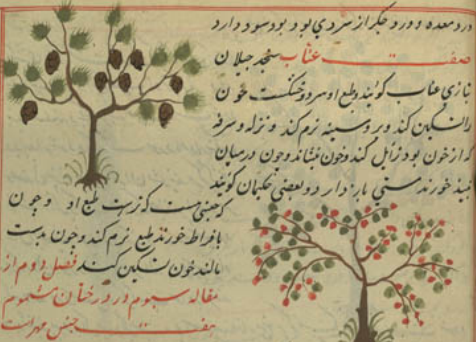 درد معده و درد جگر از سردی بود بود سود دارد
صفت عناب سنجد جیلان
تازی عناب کویند و طبع او سرد و خشکست خون
را تسکین کند و بر و سینه نرم کند و نزله و سرفه
که از خون بود زایل کند و خون بنشاند و چون در میان
نبیذ خورند مستی باز دارد و بعضی حکیمان کویند
که جنسی است که تر است طبع او و چون
بافراط خورند طبع نرم کند و چون بدست
بمالند خون تسکین کند فصل دوم از
مقاله سیوم در درختان مشموم
صفت جنس